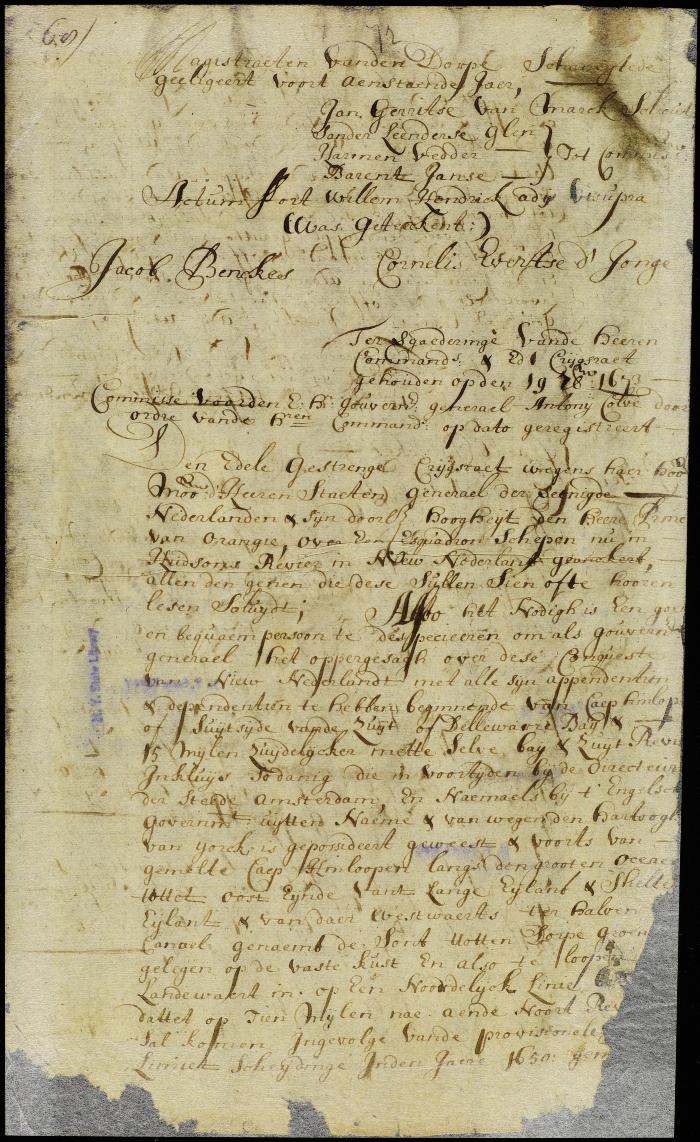 (68)
72
Magistraeten vanden Dorpe Schaneghtede
geeligeert voort aenstaende Jaer;
Jan Gerritse van Marck Schout
Sander Leenderse Glen
Harmen Vedder
Barent Janse
Tot Commiss
Actum Fort Willem Hendrick ady utsupra
(Was Geteekent:)
Jacob Benckes Cornelis Evertse d' Jonge
Ter Vgaederinge vande Heeren
Command.rs & Ed.l Crygsraet
gehouden op den 19 1673
Commissie voorden E: Hr: Gouvern.r generael Antony Colve door
ordre vande H.ren Command: op dato geregistreert
Den Edele Gestrenge Crygsraet wegens haer Hoo
Moo: d'Heeren Staeten generael der Vereenigde
Nederlanden & Syn doorl: hoogheyt den Heere Prince
van Orangie, over Een Esquadron Schepen nu in
Hudsons Revier in Niew Nederlant geanckert,
allen den genen die dese Sullen Sien ofte hooren
lesen Saluyt; Alsoo het Nodigh is Een goet
en bequaem persoon te despecieeren om als gouvern
generael het oppergesagh over dese Conqueste
van Niew Nederlandt met alle syn appendentien
& dependentien te hebben beginnende van Caep Hinlop
of Suytsyde vande Zuyt of Dellewaert Bay &
15 Mylen Zuydelycker mette Selve bay & Zuyt Revier
Inkluys Sodanig die in voortyden by de Directeur
der Steede Amsterdam, En Naemaels by t' Engelsch
Governm.t uytten Naeme & van wegen den Hartoogh
van Yorck is geposideert geweest & voorts van
gemelte Caep Hinloopen langs den grooten Oceae
tottet oost Eynde vant Lange Eylant & Shelter
Eylant & van daer Westwaerts ter halven
Canael genaemt de Sont totten Dorpe green
gelegen op de vaste Kust En also te loopen
Landewaert in op Een Noordelyck Linie
dattet op Tien Mylen nae aende Noort Rev
Sal komen Ingevolge vande provisionele
Limiet Scheydinge Inden Jaere 1650: gem
N. Y. State Library